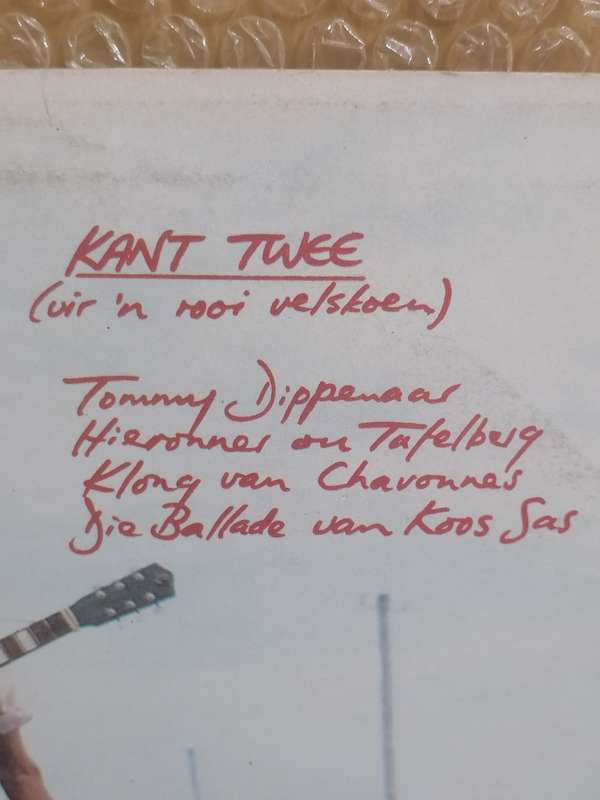 KANT TWEE
(vir 'n rooi velskoen)
Tommy Dippenaar
Hieronner on Tafelberg
Klong van Chavonnes
Die Ballade van Koos Sas